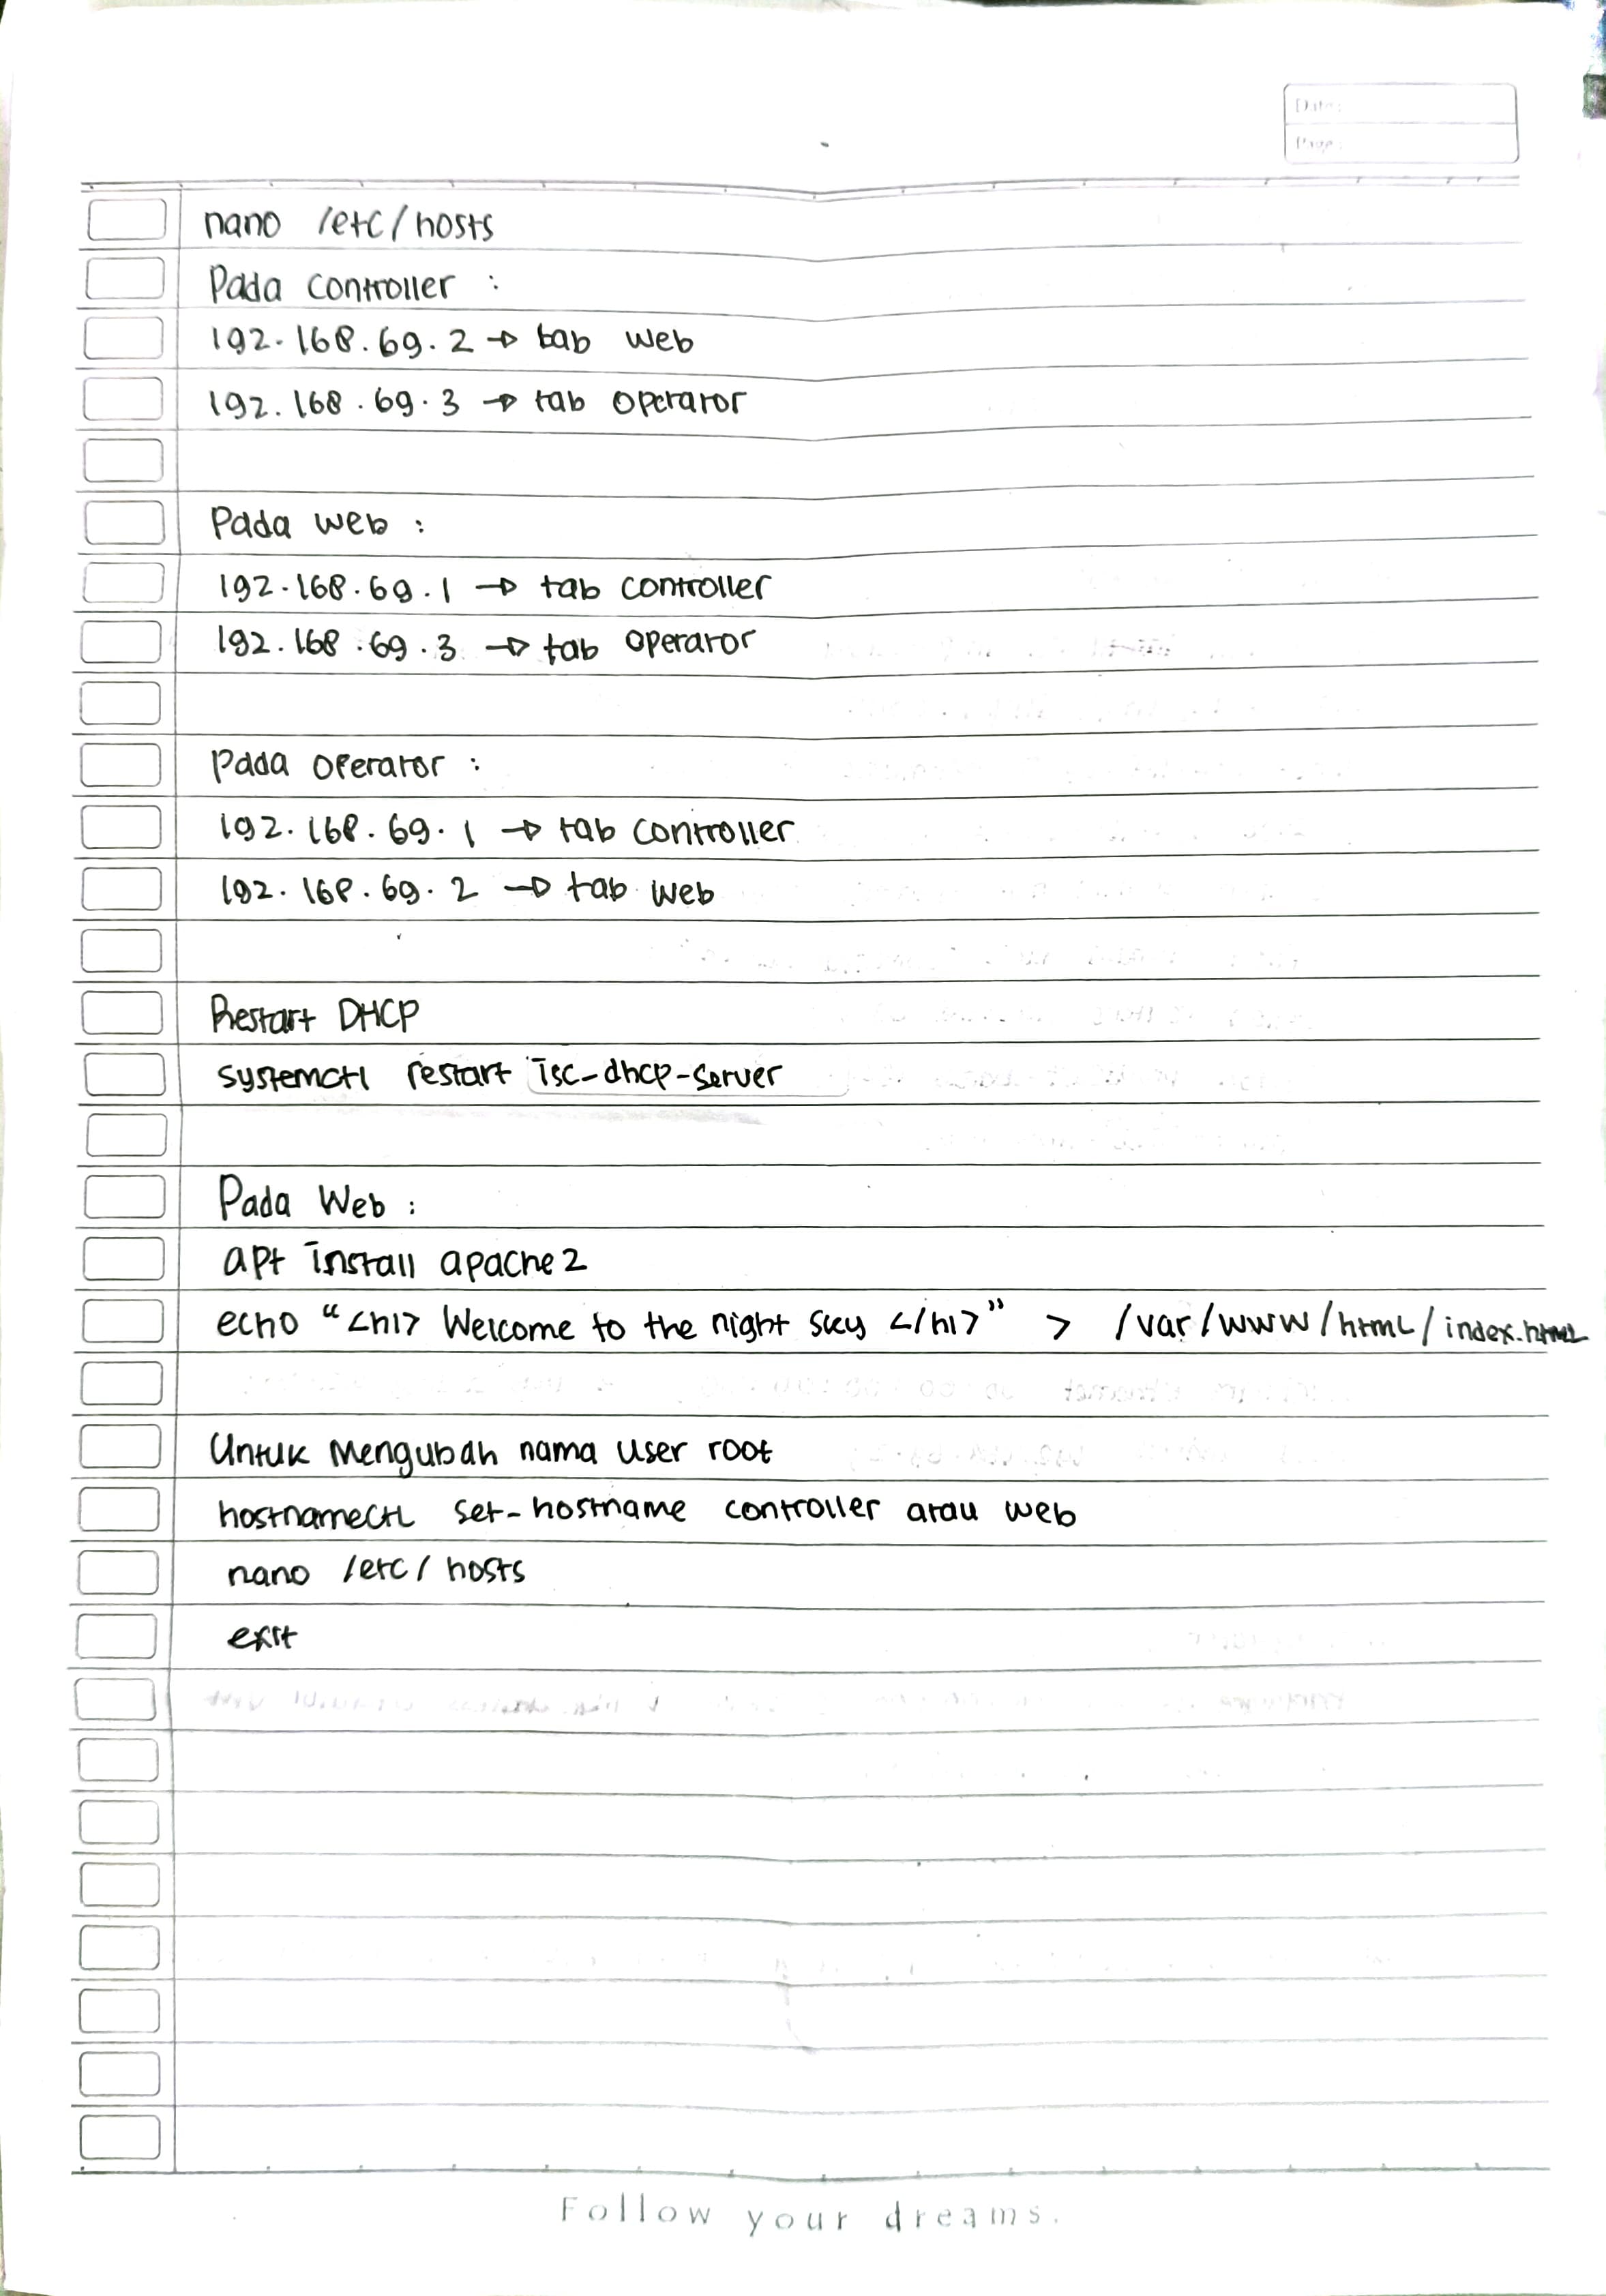 Date:
Page:
nano /etc/hosts
Pada controller :
192.168.69.2 → tab web
192.168.69.3 → tab operator
Pada web :
192.168.69.1 → tab controller
192.168.69.3 → tab operator
Pada operator :
192.168.69.1 → tab controller
192.168.69.2 → tab web
Restart DHCP
systemctl restart isc-dhcp-server
Pada Web :
apt install apache2
echo “<h1> Welcome to the night sky </h1>” > /var/www/html/index.html
Untuk Mengubah nama user root
hostnamectl set-hostname controller atau web
nano /etc/hosts
exit
Follow your dreams.